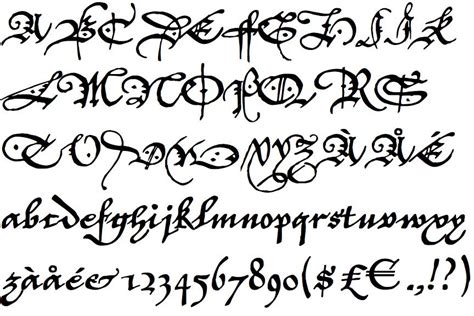 A B C D E F G H I J K
L M N O P Q R S
T U V W X Y Z À Å É
abcdefghijklmnopqrstuvwxy
zàåé&1234567890($£€.,!?)